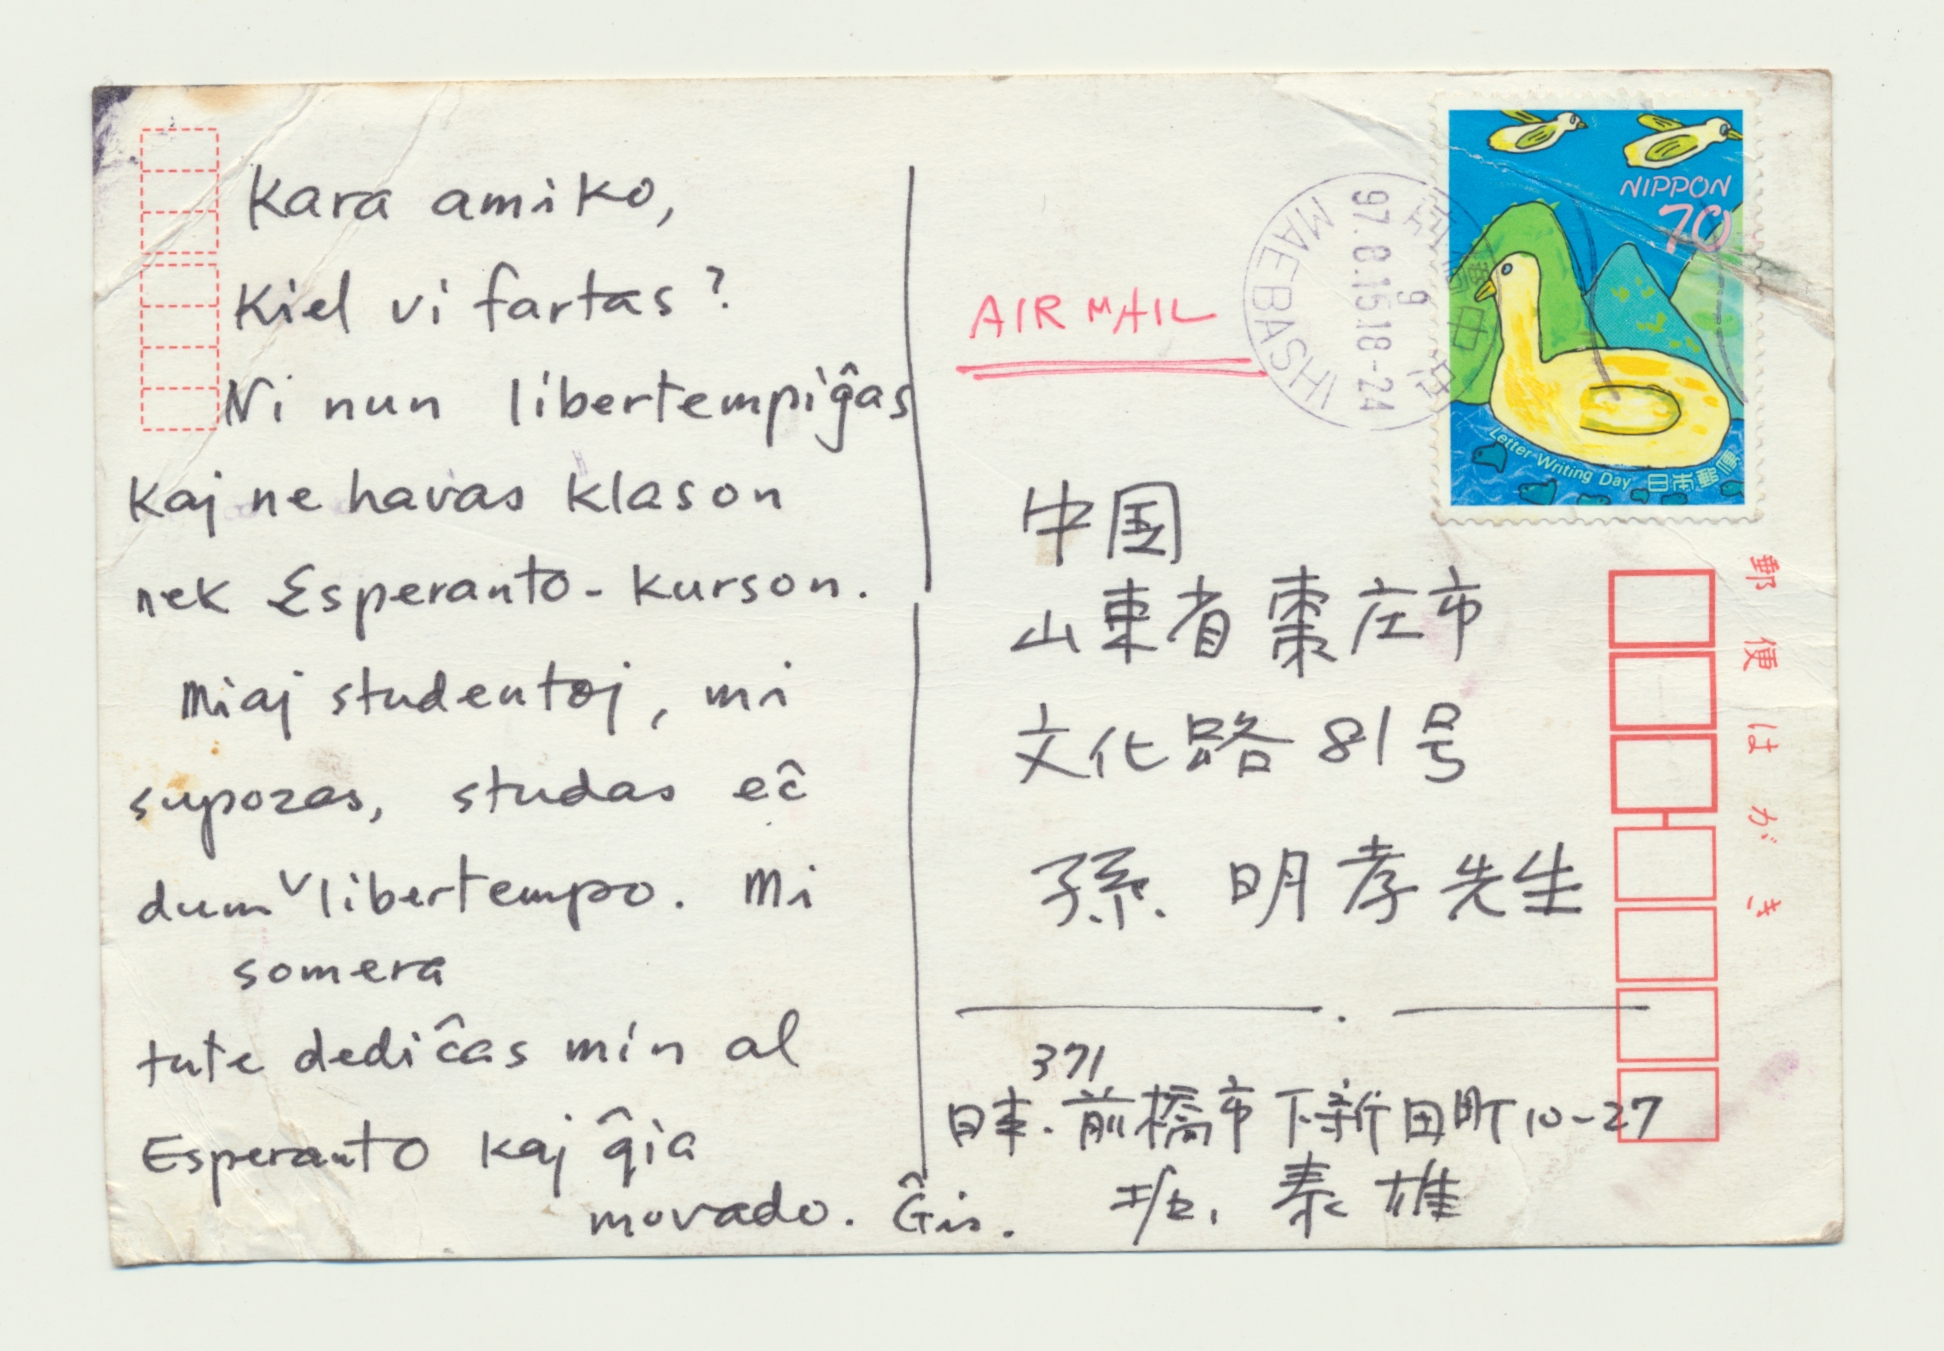 Kara amiko,
Kiel vi fartas?
Ni nun libertempiĝas
kaj ne havas klason
nek Esperanto-kurson.
Miaj studentoj, mi
supozas, studas eĉ
dum libertempo. Mi
somera
tute dediĉas min al
Esperanto kaj ĝia
movado. Ĝis.
AIR MAIL
MAEBASHI
97.8.15.18-24
NIPPON
70
Letter Writing Day 日本郵便
中国
山東省棗庄市
文化路81号
孫 明孝先生
371
日本.前橋市下新田町10-27
泰雄
郵便はがき